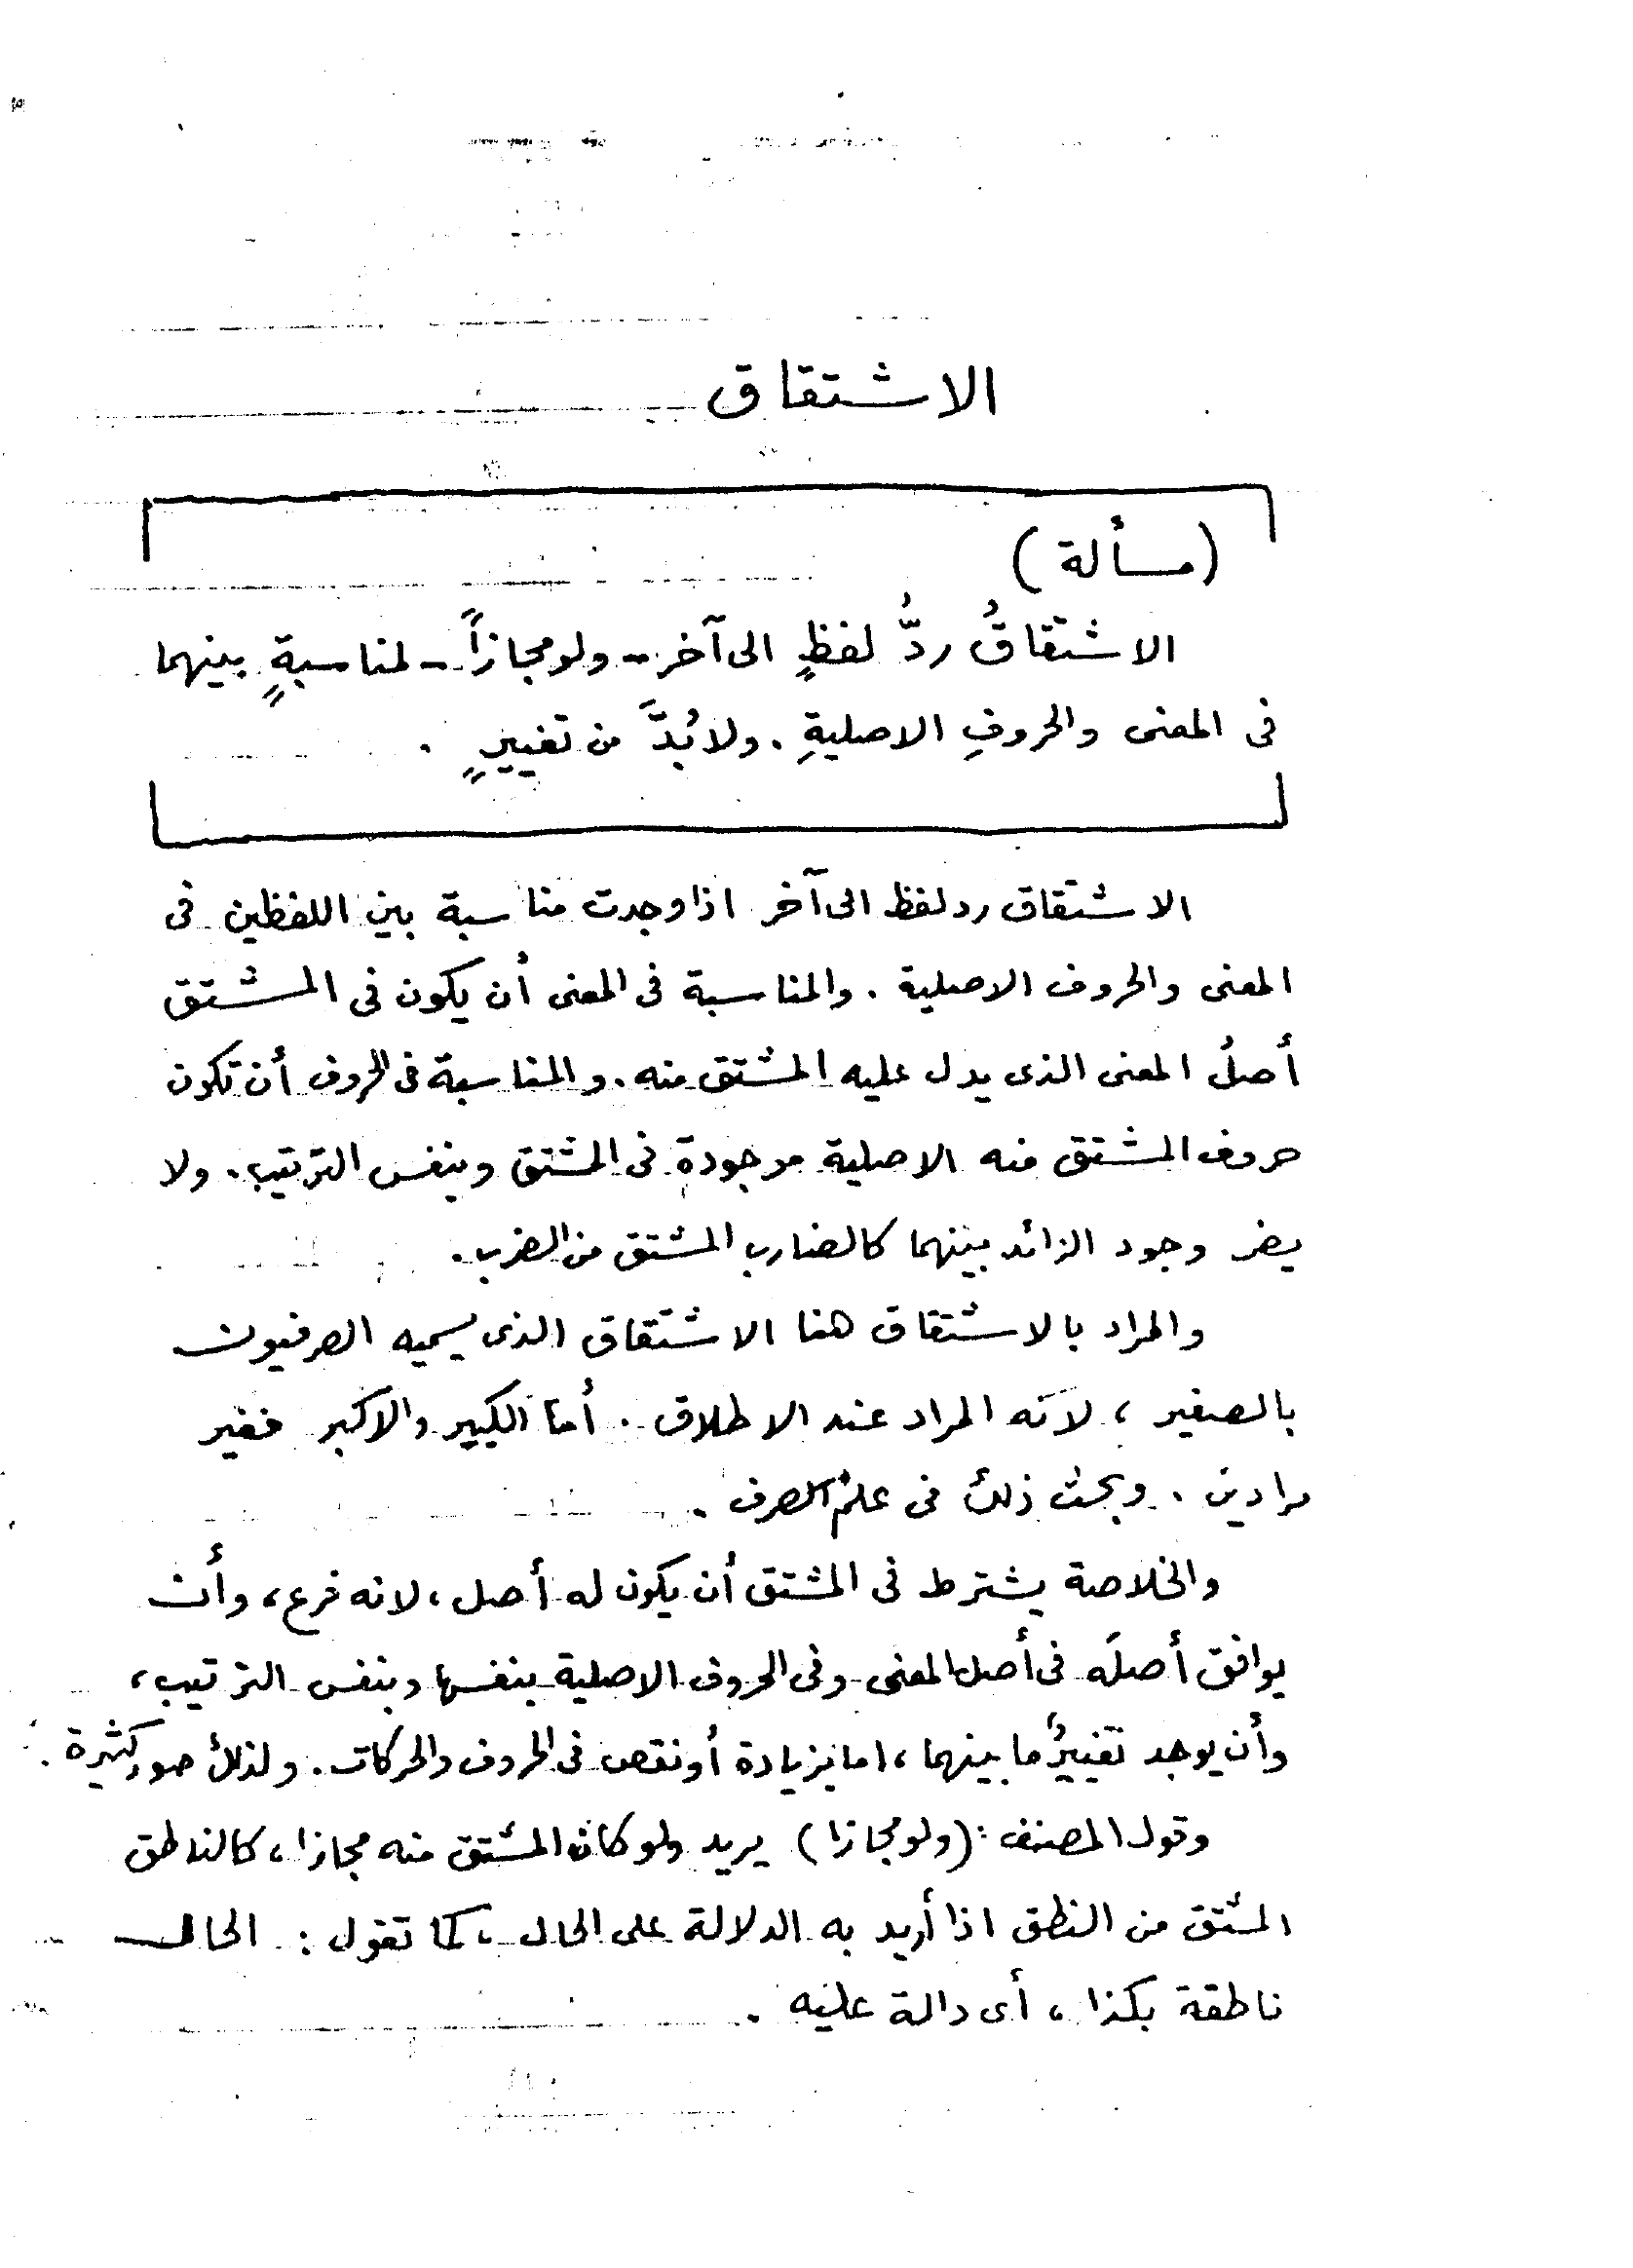 الاشتقاق
(مسألة)
الاشتقاقُ ردُّ لفظٍ الى آخر - ولو مجازاً - لمناسبةٍ بينهما
فى المعنى والحروفِ الاصليةِ . ولا بُدَّ من تغييرٍ .
الاشتقاق رد لفظ الى آخر اذا وجدت مناسبة بين اللفظين فى
المعنى والحروف الاصلية . والمناسبة فى المعنى أن يكون فى المشتق
أصلُ المعنى الذى يدل عليه المشتق منه . والمناسبة فى الحروف أن تكون
حروف المشتق منه الاصلية موجودة فى المشتق وبنفس الترتيب . ولا
يضر وجود الزائد بينهما كالضارب المشتق من الضرب .
والمراد بالاشتقاق هنا الاشتقاق الذى يسميه الصرفيون
بالصغير ، لانه المراد عند الاطلاق . أما الكبير والاكبر فغير
مرادين . وبحث ذلك فى علم الصرف .
والخلاصة يشترط فى المشتق أن يكون له أصل ، لانه فرع ، وأن
يوافق أصلَه فى أصل المعنى وفى الحروف الاصلية بنفسها وبنفس الترتيب ،
وأن يوجد تغييرٌ ما بينهما ، اما بزيادة أو نقص فى الحروف والحركات . ولذلك صور كثيرة .
وقول المصنف : (ولو مجازا) يريد ولو كان المشتق منه مجازا ، كالناطق
المشتق من النطق اذا أريد به الدلالة على الحال ، كما تقول : الحال
ناطقة بكذا ، أى دالة عليه .